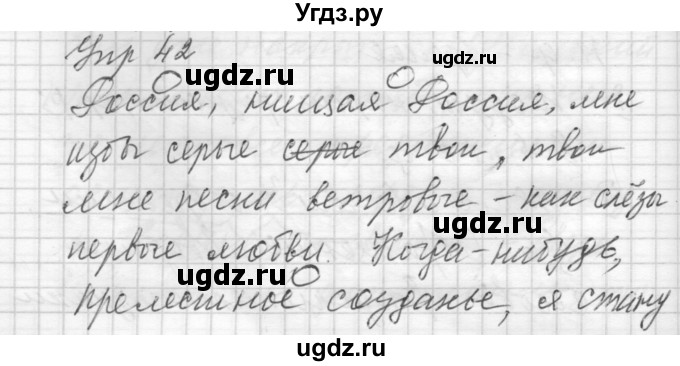 Угдз.ру
Упр 42
ugdz.ru ugdz.ru
Россия, нищая Россия, мне
избы серые серые твои, твои
мне песни ветровые – как слёзы
ugdz.ru
первые любви. Когда-нибудь,
ugdz.ru
прелестное созданье, я стану
ugdz.ru